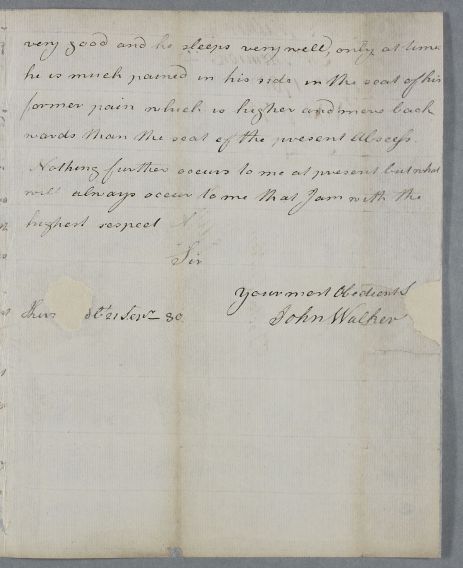 very good and he sleeps very well, only at times
he is much pained in his side in the seat of his
former pain which is higher and more back
wards than the seat of the present Abscess.
Nothing further occurs to me at present but what
will always occur to me that I am with the
highest respect
Sir
Your most Obedient S
John Walker
21 80